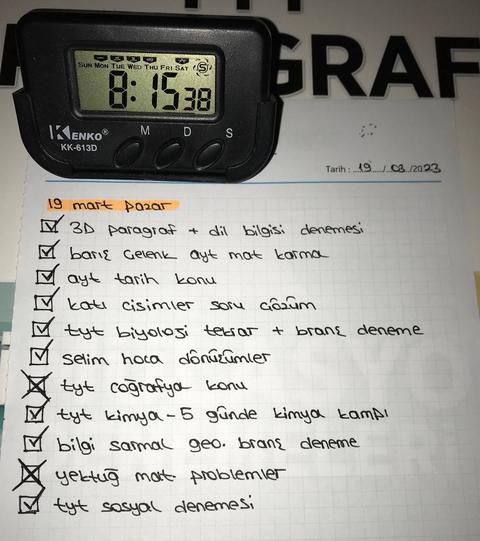 GRAF
SUN MON TUE WED THU FRI SAT
8:15 38
KENKO®
M D S
KK-613D
Tarih: 19 / 03 /2023
19 mart pazar
3D paragraf + dil bilgisi denemesi
barış çelenk ayt mat karma
ayt tarih konu
katı cisimler soru çözüm
tyt biyoloji tekrar + branş deneme
selim hoca dönüşümler
tyt coğrafya konu
tyt kimya - 5 günde kimya kampı
bilgi sarmal geo. branş deneme
yektuğ mat problemler
tyt sosyal denemesi